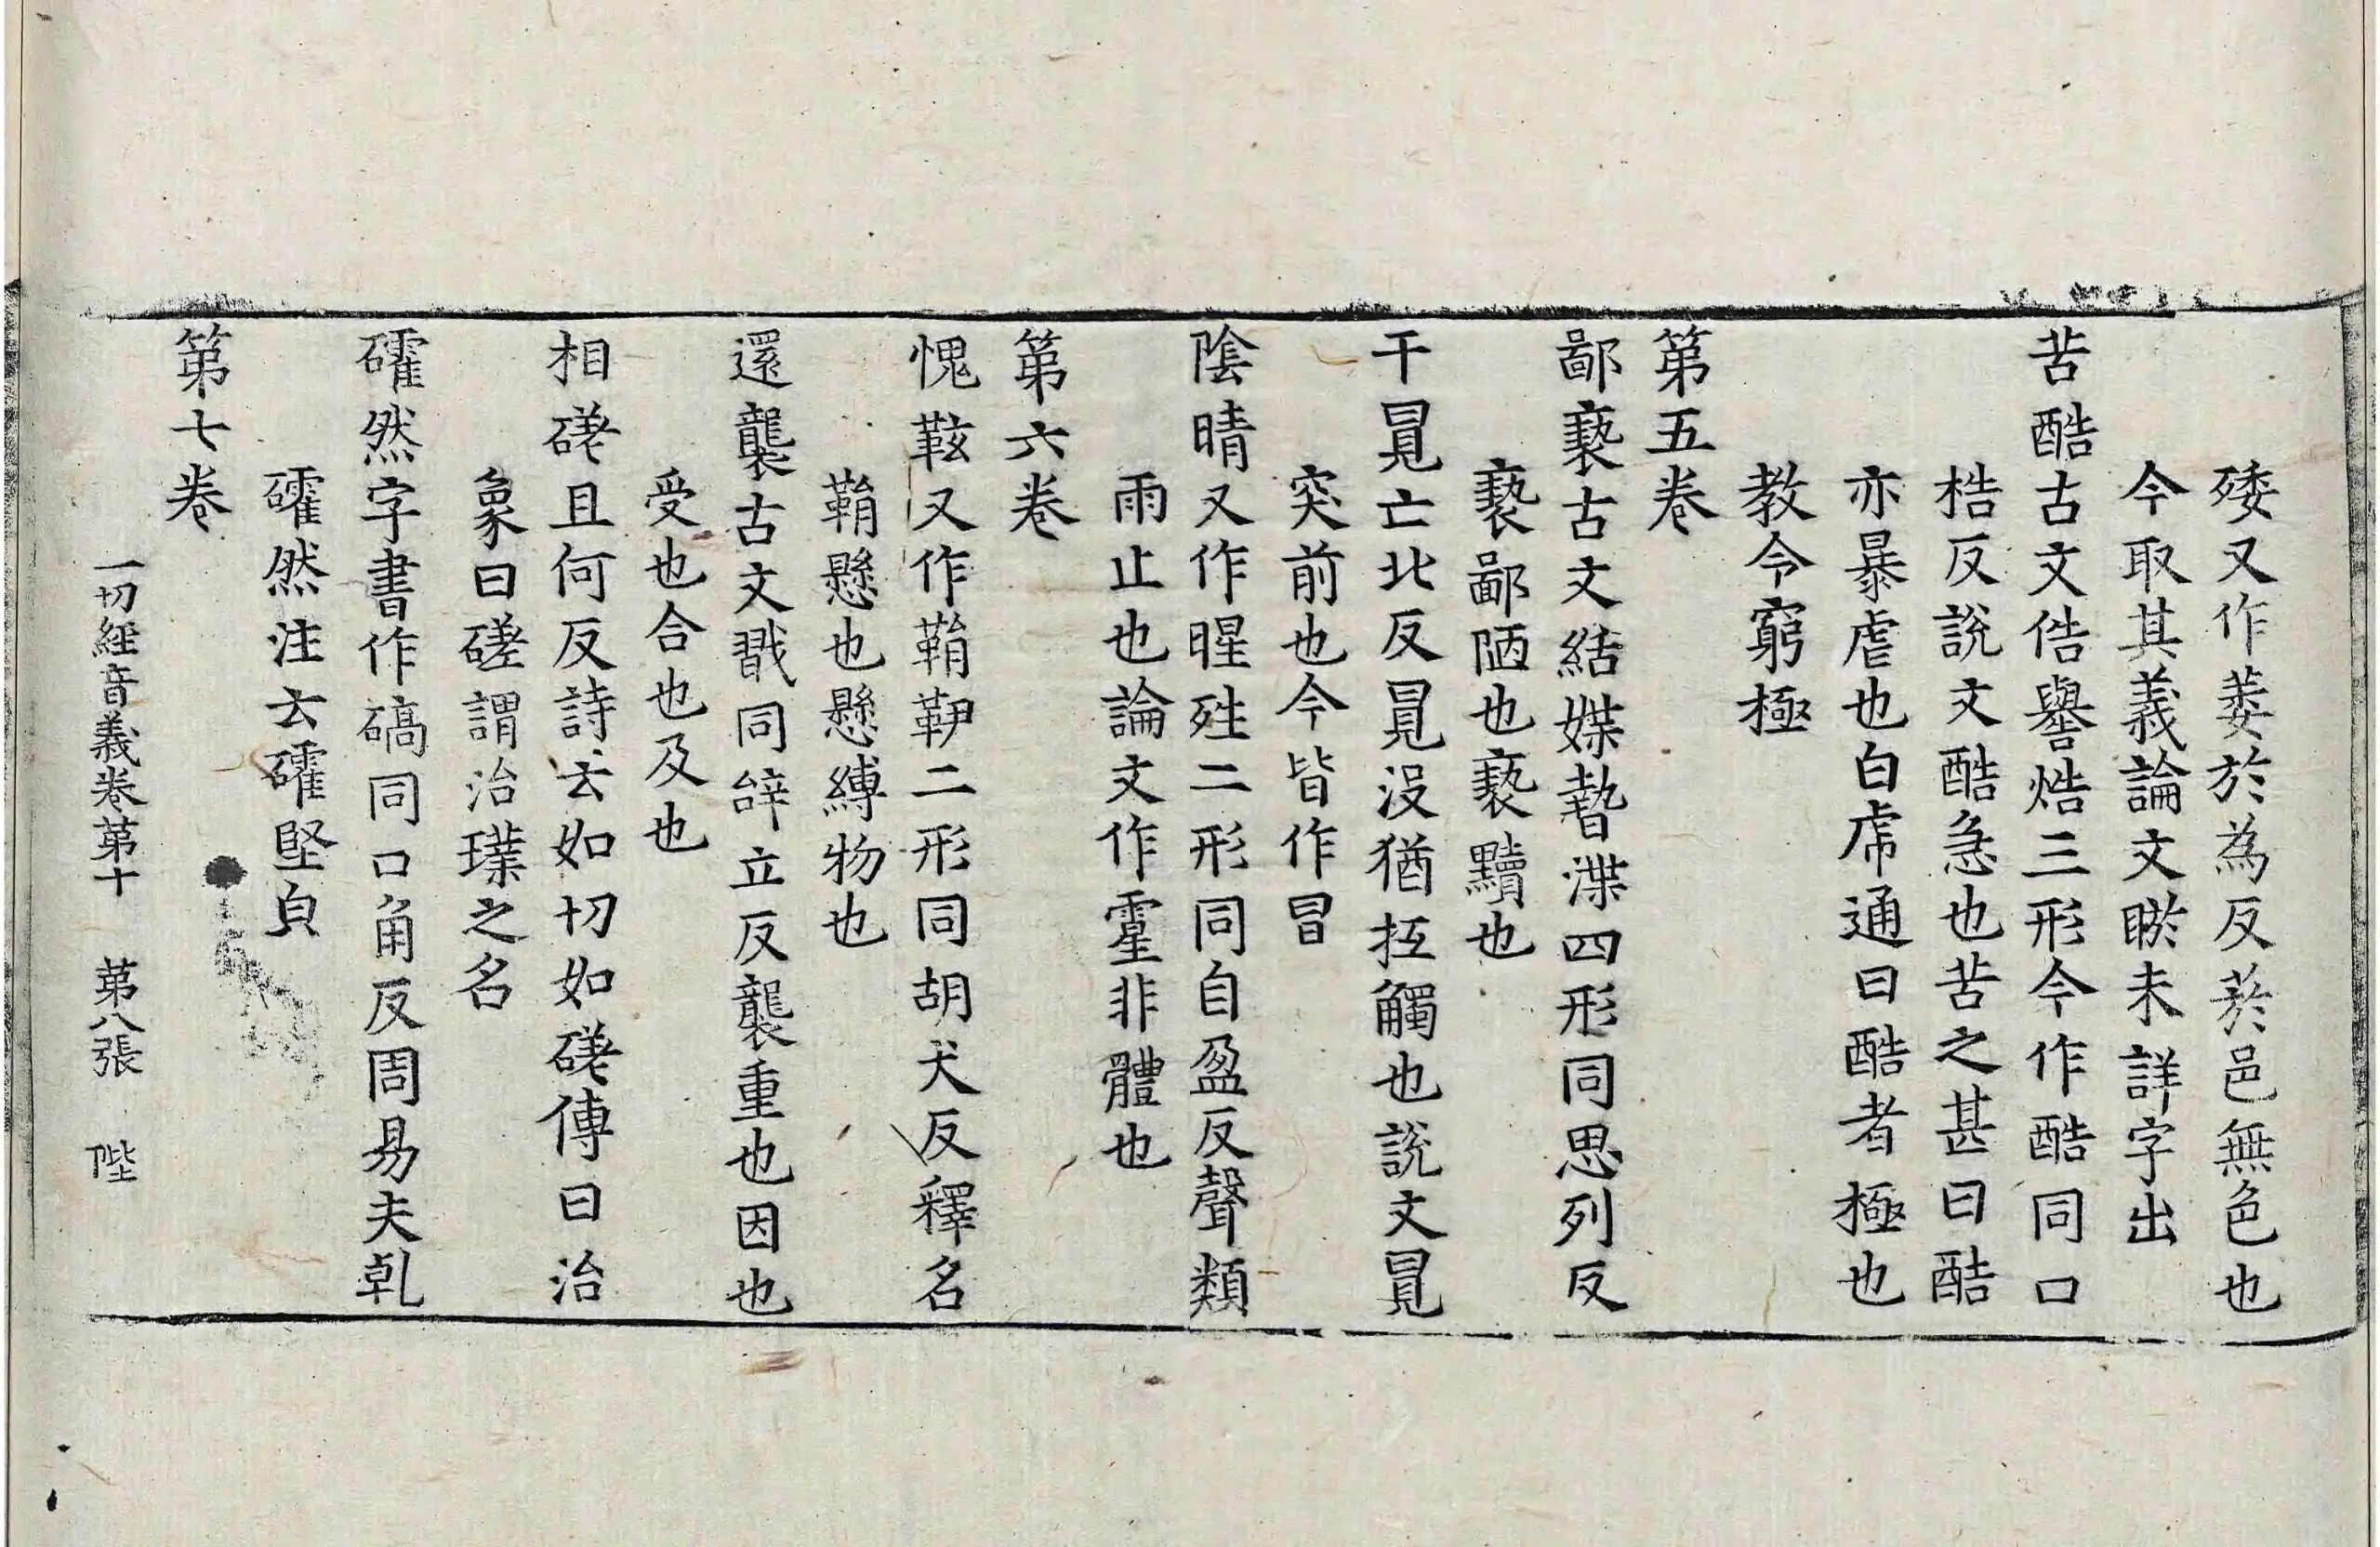 矮又作萎於為反菸邑無色也
今取其義論文瘀未詳字出
苦酷古文俈嚳焅三形今作酷同口
梏反說文酷急也苦之甚曰酷
亦暴虐也白虎通曰酷者極也
教令窮極
第五卷
鄙褻古文結媟暬渫四形同思列反
褻鄙陋也褻黷也
干冒亡北反冒没猶抵觸也說文冒
突前也今皆作冒
陰晴又作暒殅二形同自盈反聲類
雨止也論文作霪非體也
第六卷
愧鞍又作鞘䩛二形同胡犬反釋名
鞘懸也懸縛物也
還襲古文戠同辝立反襲重也因也
受也合也及也
相磋且何反詩云如切如磋傳曰治
象曰磋謂治璞之名
礭然字書作碻同口角反周易夫乹
礭然注云礭堅皃
第七卷
一切經音義卷第十 第八張 陛